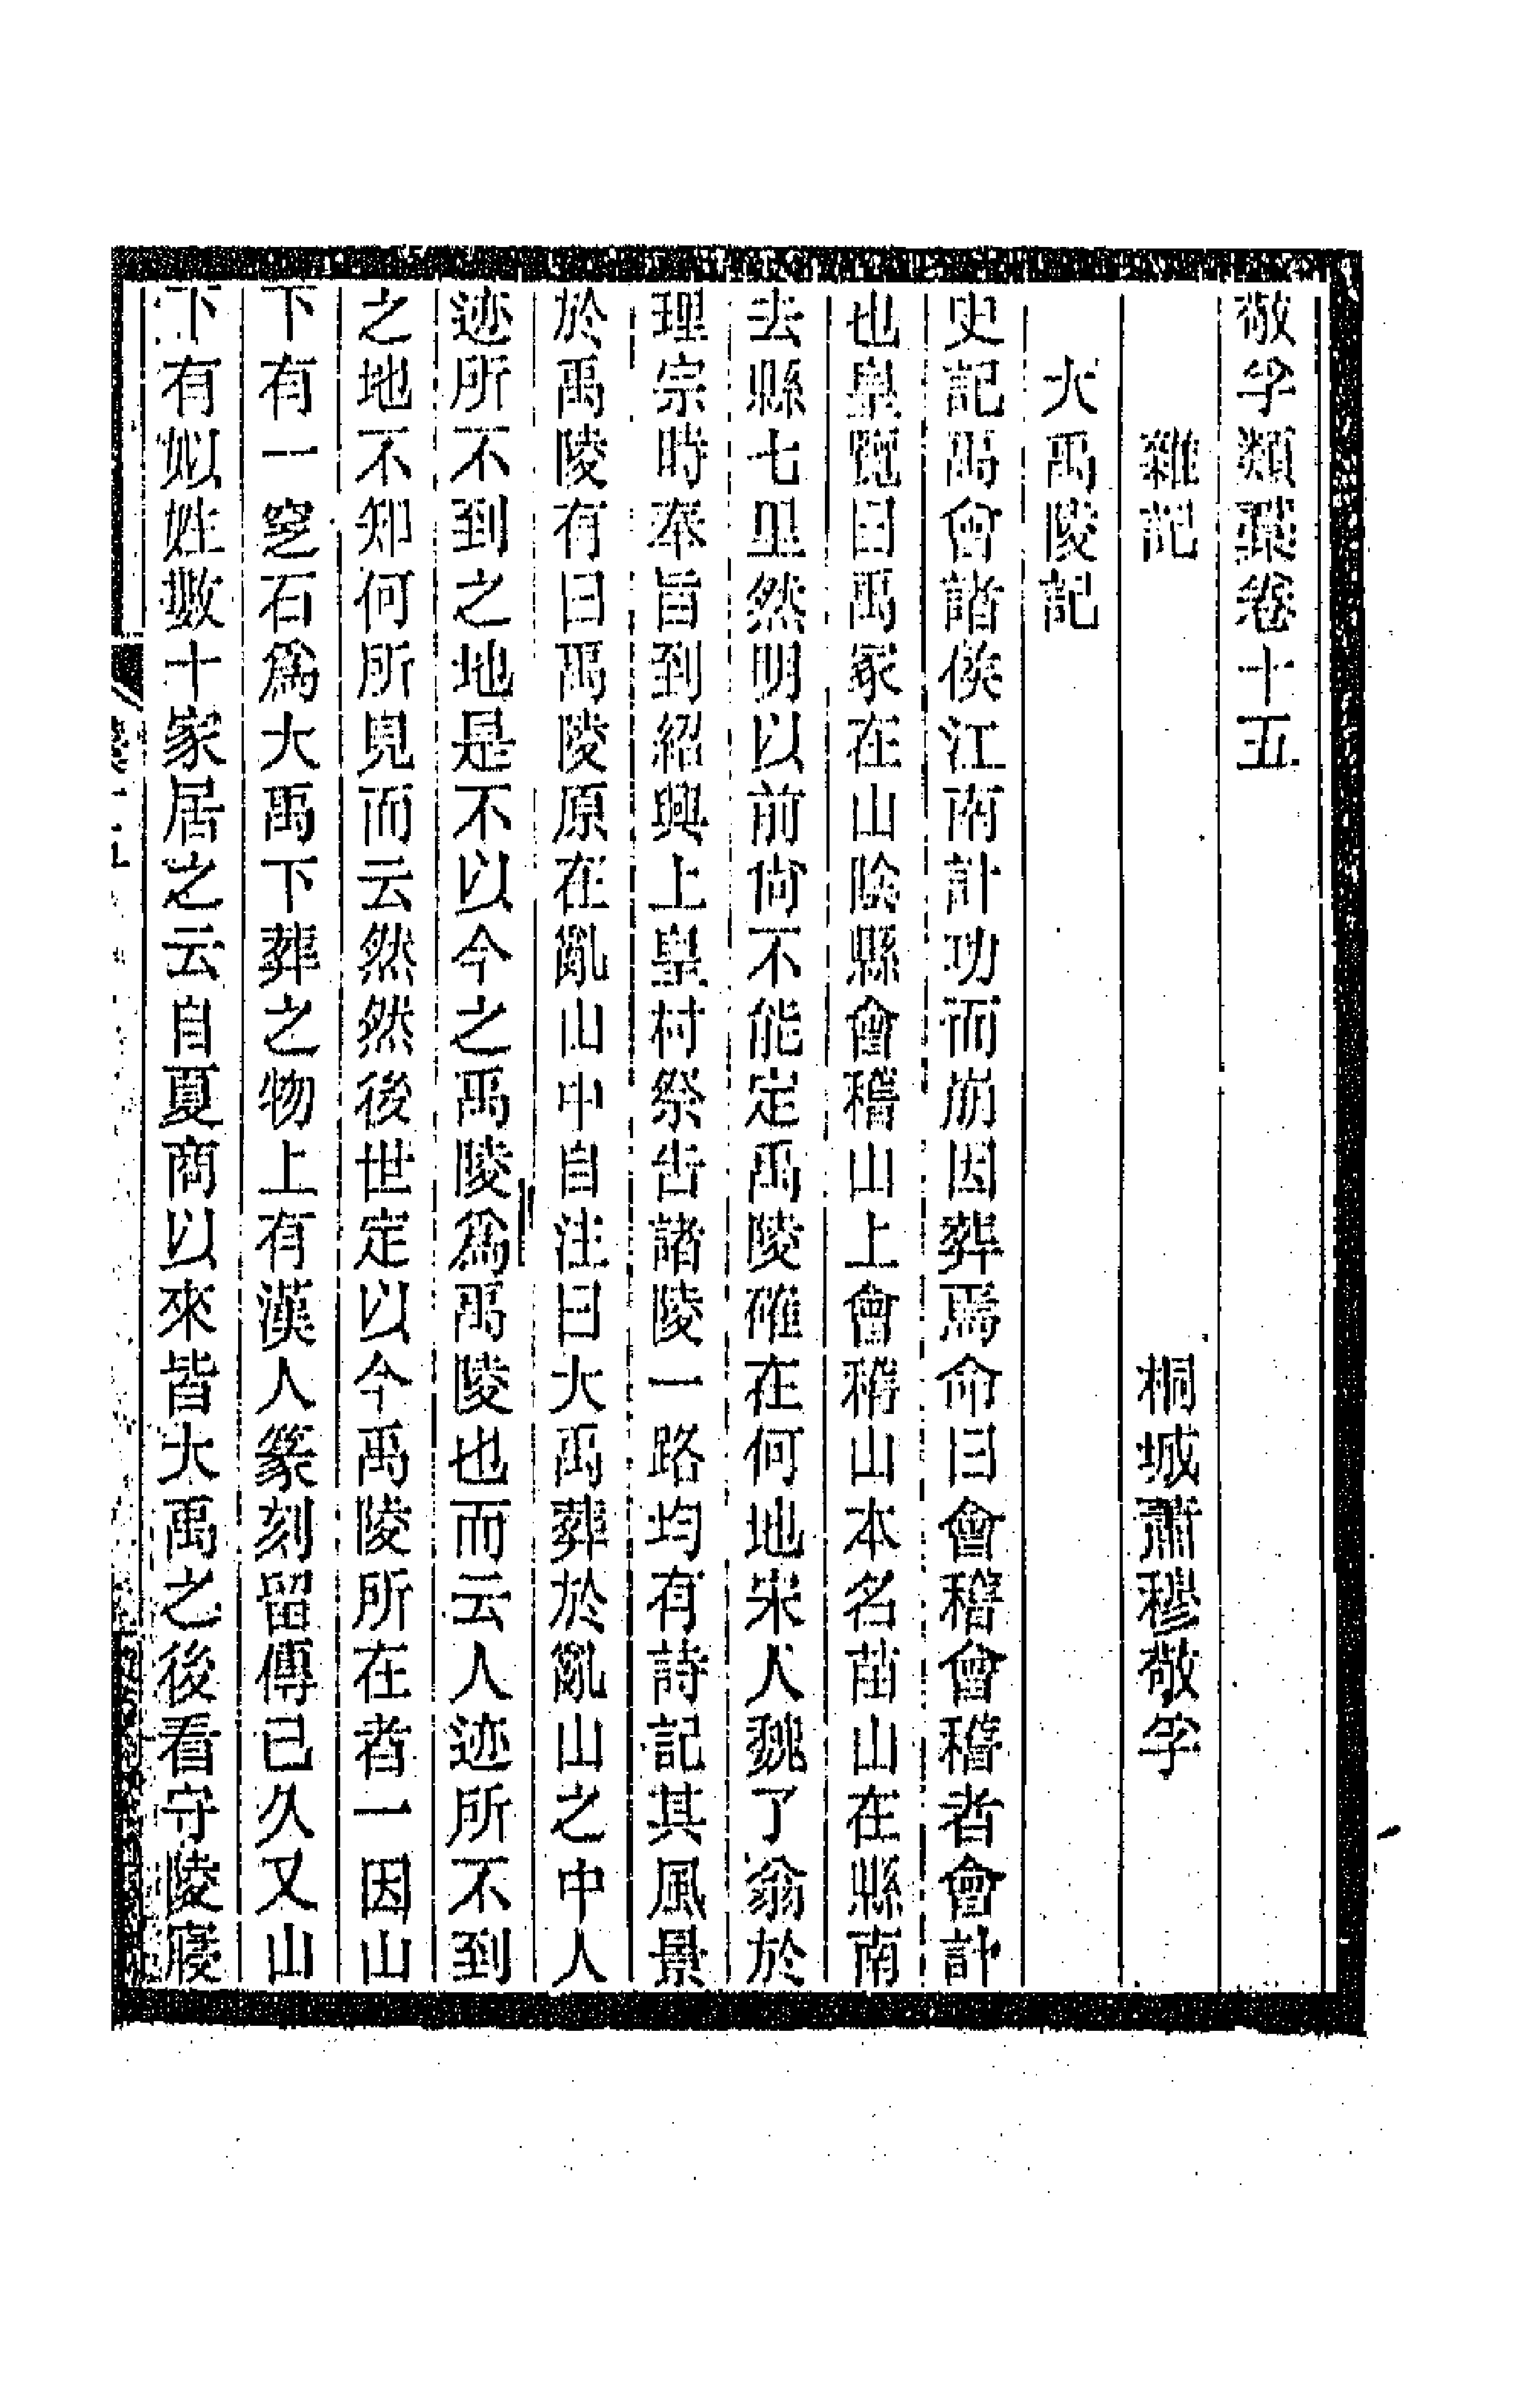 敬孚類藁卷十五
雜記　桐城蕭穆敬孚
大禹陵記
史記禹會諸侯江南計功而崩因葬焉命曰會稽會稽者會計
也皇覽曰禹冢在山陰縣會稽山上會稽山本名苗山在縣南
去縣七里然明以前尚不能定禹陵確在何地宋人魏了翁於
理宗時奉旨到紹興上皇村祭告諸陵一路均有詩記其風景
於禹陵有曰禹陵原在亂山中自注曰大禹葬於亂山之中人
迹所不到之地是不以今之禹陵爲禹陵也而云人迹所不到
之地不知何所見而云然然後世定以今禹陵所在者一因山
下有一窆石爲大禹下葬之物上有漢人篆刻留傳已久又山
下有姒姓數十家居之云自夏商以來皆大禹之後看守陵寢